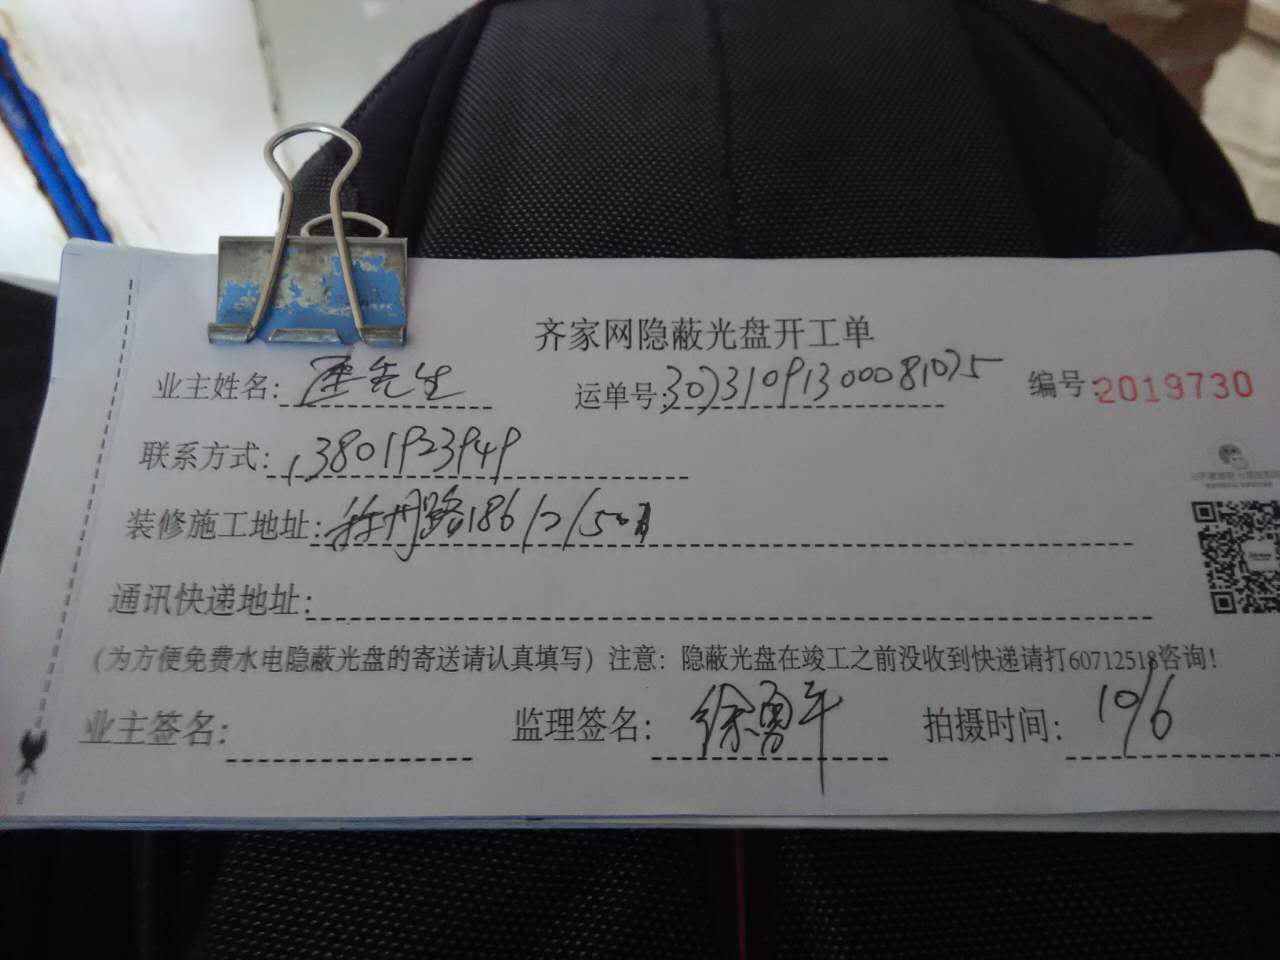 齐家网隐蔽光盘开工单
业主姓名: 先生 运单号: 30731091300081075 编号: 2019730
联系方式: 13801923949
装修施工地址: 路186/2/501
通讯快递地址:
(为方便免费水电隐蔽光盘的寄送请认真填写) 注意: 隐蔽光盘在竣工之前没收到快递请打60712518咨询!
业主签名: 监理签名: 徐勇平 拍摄时间: 10/6